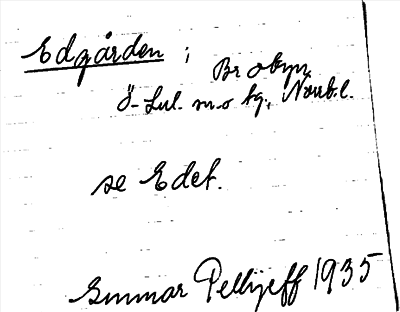 Edgården i Brobyn
Ö-Lul. m.o tg, Norrb.l.
se Edet.
Gunnar Pellijeff 1935